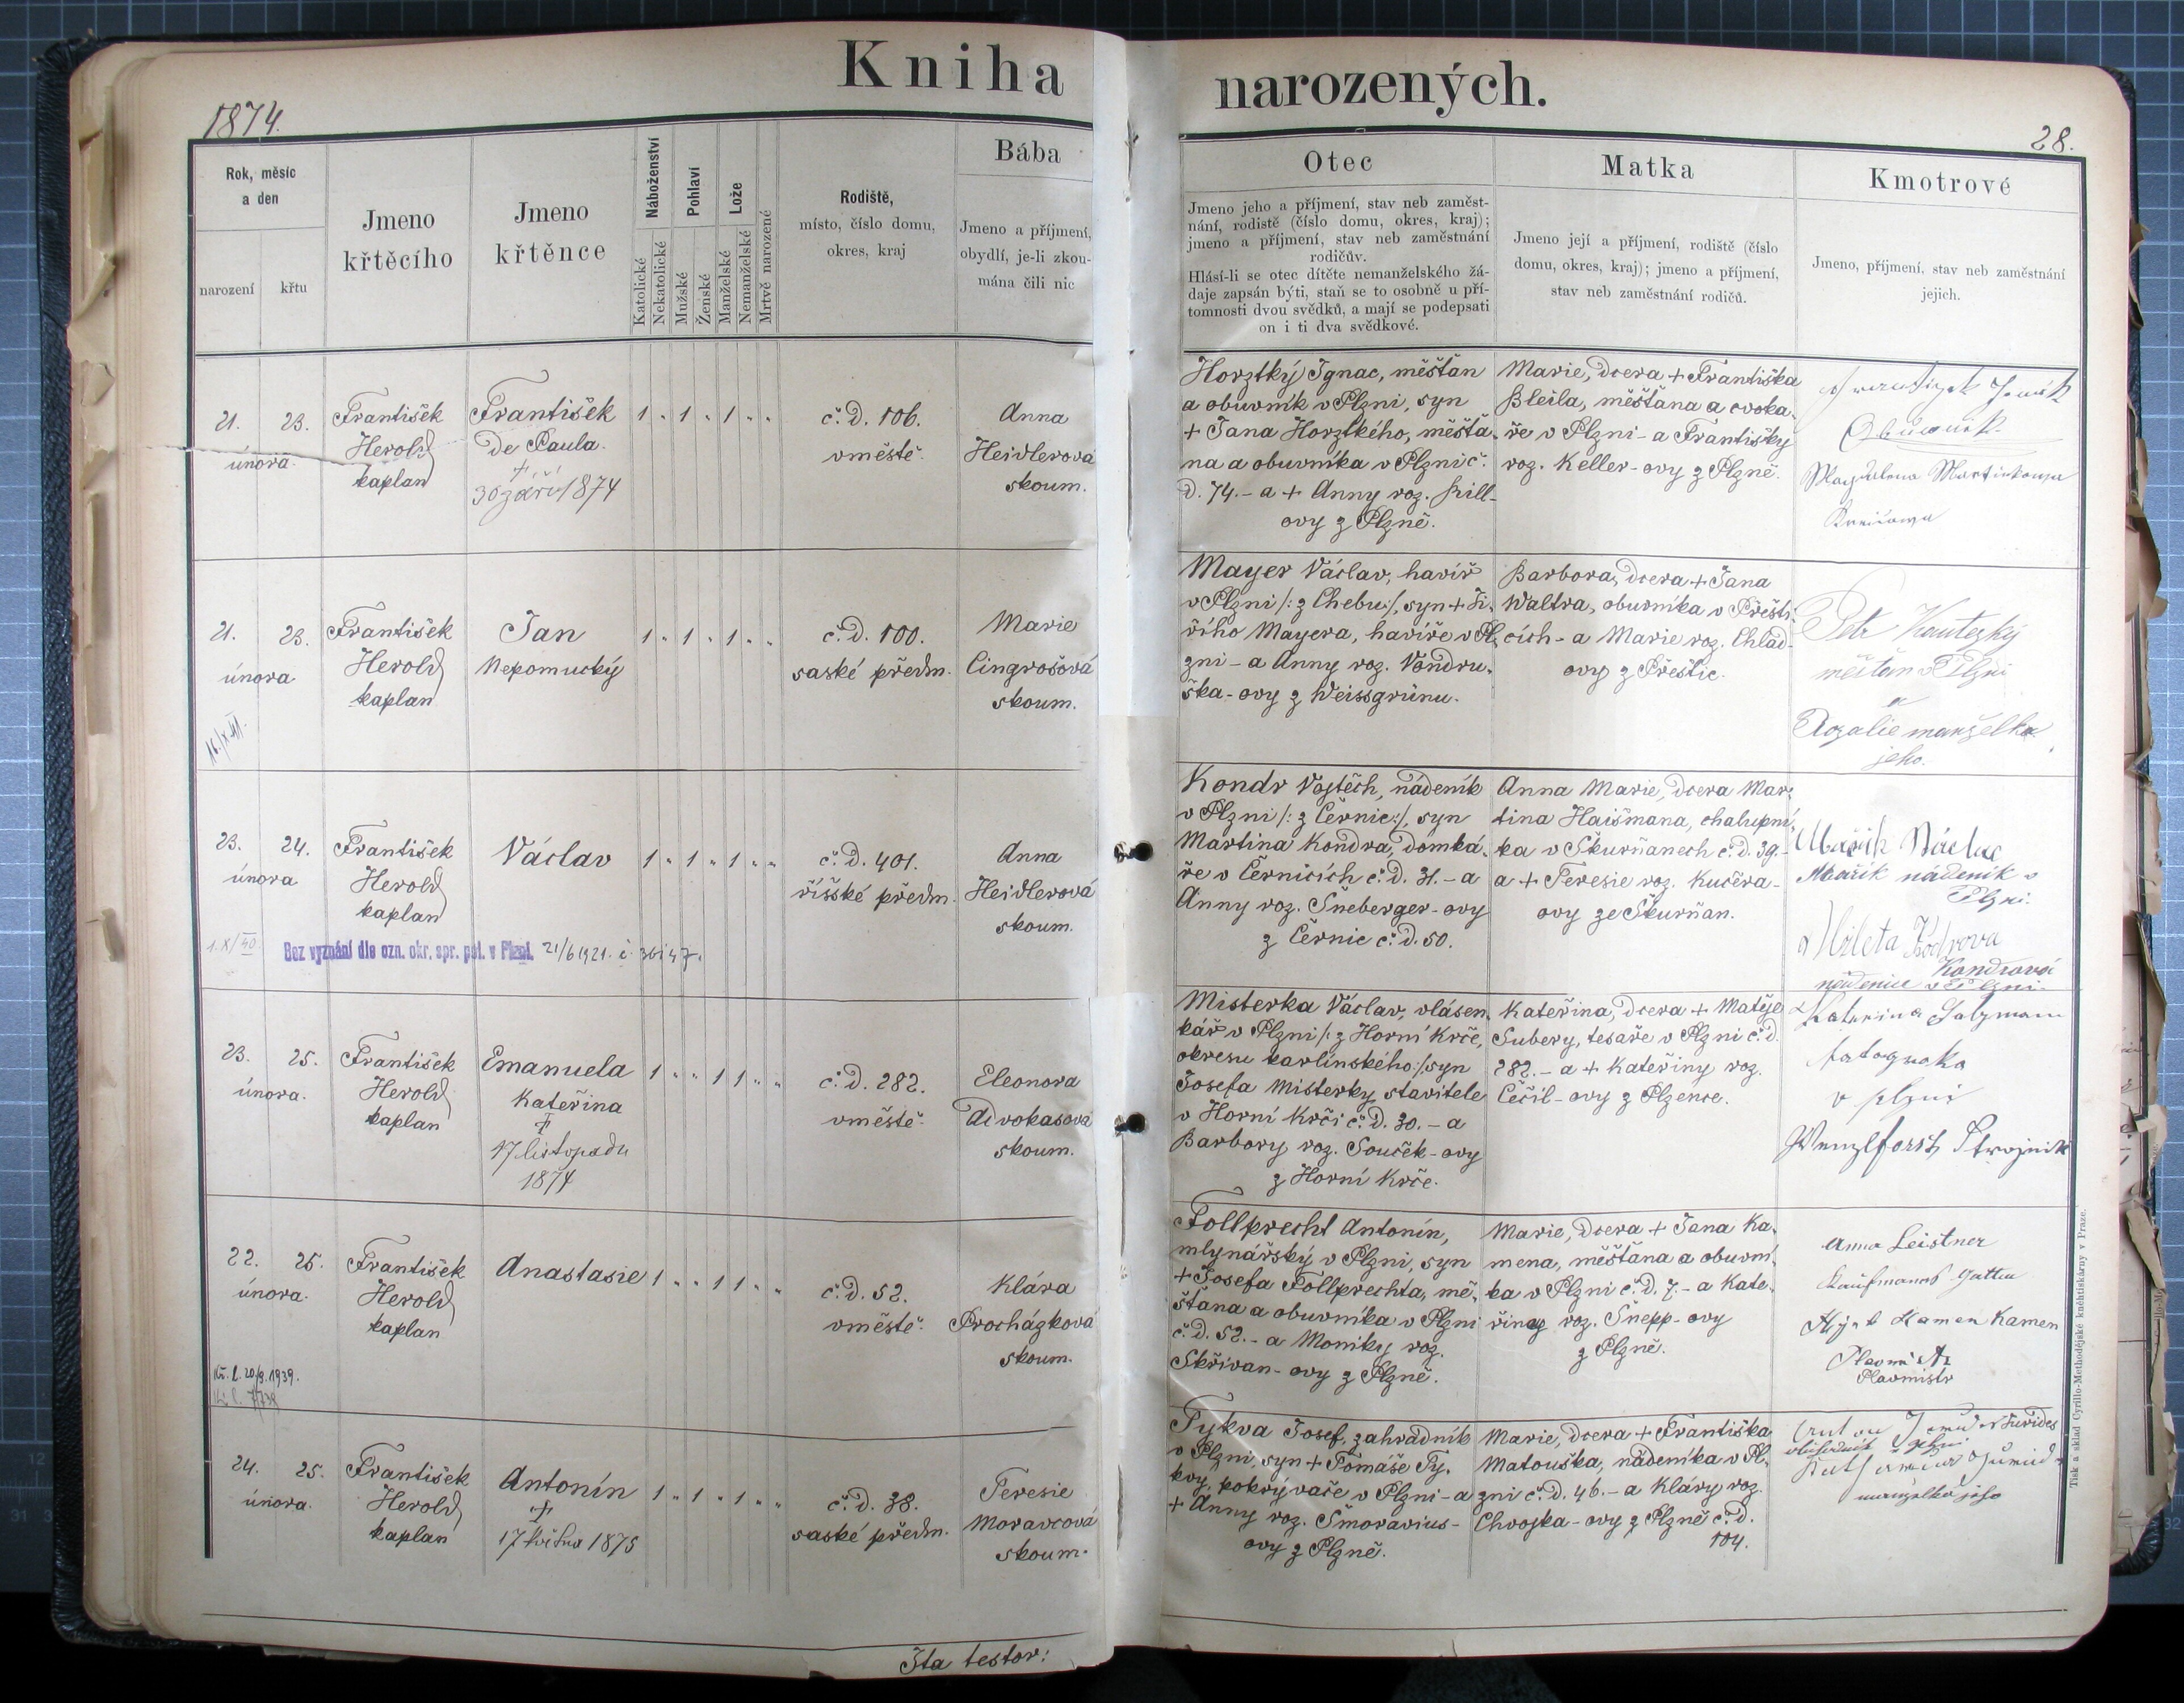 Kniha narozených.
1874.
28.
Rok, měsíc
a den
narození
křtu
Jmeno
křtěcího
Jmeno
křtěnce
Náboženství
Katolické
Nekatolické
Pohlaví
Mužské
Ženské
Lože
Manželské
Nemanželské
Mrtvě narozené
Rodiště,
místo, číslo domu,
okres, kraj
Bába
Jmeno a příjmení,
obydlí, je-li zkou-
mána čili nic
Otec
Jmeno jeho a příjmení, stav neb zaměst-
nání, rodiště (číslo domu, okres, kraj);
jmeno a příjmení, stav neb zaměstnání
rodičův.
Hlásí-li se otec dítěte nemanželského žá-
daje zapsán býti, staň se to osobně u pří-
tomnosti dvou svědků, a mají se podepsati
on i ti dva svědkové.
Matka
Jmeno její a příjmení, rodiště (číslo
domu, okres, kraj); jmeno a příjmení,
stav neb zaměstnání rodičů.
Kmotrové
Jmeno, příjmení, stav neb zaměstnání
jejich.
21. 23.
února.
František
Herold
kaplan
František
De Paula.
+
30 září 1874
1 " 1 " 1 " "
č. d. 106.
v městě.
Anna
Heidlerová
skoum.
Horztký Ignac, měšťan
a obuvník v Plzni, syn
+ Jana Horztkého, měšťa-
na a obuvníka v Plzni č.
d. 74. - a + Anny roz.
ovy z Plzně.
Marie, dcera + Františka
Bleila, měšťana a cvoka-
ře v Plzni - a Františky
roz. Keller-ovy z Plzně.
Obuvník
Magdalena
21. 23.
února
František
Herold
kaplan
Jan
Nepomucký
1 " 1 " 1 " "
č. d. 100.
saské předm.
Marie
Cingrošová
skoum.
Mayer Václav, havíř
v Plzni /: z Chebu :/, syn + Ji-
řího Mayera, havíře v Pl-
zni - a Anny roz. Vondru-
ška-ovy z Weissgrünu.
Barbora, dcera + Jana
Waltra, obuvníka v Přešti-
cích - a Marie roz. Chlad-
ovy z Přeštic.
Petr Kautezký
měšťan v Plzni
a
Rozalie manželka
jeho.
23. 24.
února
František
Herold
kaplan
Václav
1 " 1 " 1 " "
č. d. 401.
říšské předm.
Anna
Heidlerová
skoum.
Bez vyznání dle ozn. okr. spr. pol. v Plzni. 21/6 1921. č. 36147.
Kondr Vojtěch, nádeník
v Plzni /: z Černic :/, syn
Martina Kondra, domká-
ře v Černicích č. d. 31. - a
Anny roz. Šneberger-ovy
z Černic č. d. 50.
Anna Marie, dcera Mar-
tina Haišmana, chalupní-
ka v Škurňanech č. d. 39. -
a + Teresie roz. Kučera-
ovy ze Škurňan.
Mařík Václav
Mařík nádeník v
Plzni.
Kodrova
Kondrová
nádenice v Plzni
23. 25.
února.
František
Herold
kaplan
Emanuela
Kateřina
+
17 listopadu
1874
1 " " 1 1 " "
č. d. 282.
v městě.
Eleonora
Advokasová
skoum.
Misterka Václav, vlásen-
kář v Plzni /: z Horní Krče,
okresu karlínského :/ syn
Josefa Misterky stavitele
v Horní Krči č. d. 30. - a
Barbory roz. Souček-ovy
z Horní Krče.
Kateřina, dcera + Matěje
Subery, tesaře v Plzni č. d.
282. - a + Kateřiny roz.
Čečil-ovy z Plzence.
Katerina Salzmann
v plzni
Strojnik
22. 25.
února.
František
Herold
kaplan
Anastasie
1 " " 1 1 " "
č. d. 52.
v městě.
Klára
Procházková
skoum.
Kř. l. 20/9. 1939.
Follprecht Antonín,
mlynářský v Plzni, syn
+ Josefa Follprechta, mě-
šťana a obuvníka v Plzni
č. d. 52. - a Moniky roz.
Skřivan-ovy z Plzně.
Marie, dcera + Jana Ka-
mena, měšťana a obuvní-
ka v Plzni č. d. 7. - a Kate-
řiny roz. Šnepp-ovy
z Plzně.
Anna Leistner
Kaufmanns Gattin
Kamen Kamen
Stavmistr
24. 25.
února.
František
Herold
kaplan
Antonín
+
17 května 1875
1 " 1 " 1 " "
č. d. 38.
saské předm.
Teresie
Moravcová
skoum.
Tykva Josef, zahradník
v Plzni, syn + Tomáše Ty-
kvy, pokrývače v Plzni - a
+ Anny roz. Šmoravius-
ovy z Plzně.
Marie, dcera + Františka
Matouška, nádeníka v Pl-
zni č. d. 46. - a Kláry roz.
Chvojka-ovy z Plzně č. d.
104.
manželka jeho
Ita testor:
Tisk a sklad Cyrillo-Methodějské knihtiskárny v Praze.